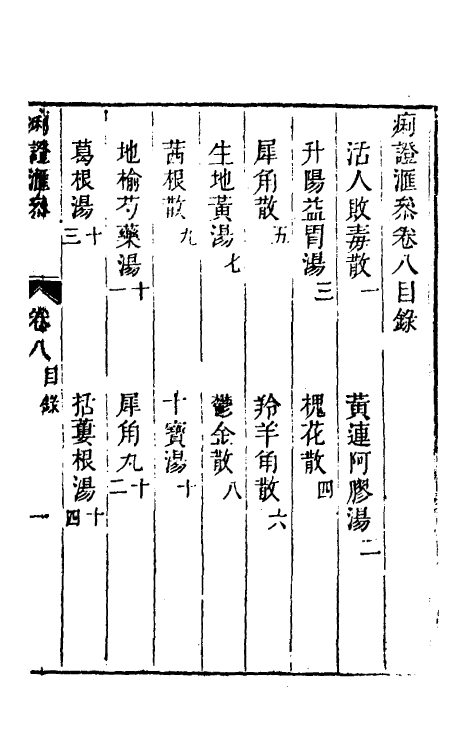 痢證滙叅卷八目錄
活人敗毒散一
黃連阿膠湯二
升陽益胃湯三
槐花散四
犀角散五
羚羊角散六
生地黃湯七
鬱金散八
茜根散九
十寶湯十
地榆芍藥湯十一
犀角丸十二
葛根湯十三
括蔞根湯十四
痢證滙叅
卷八
目錄
一